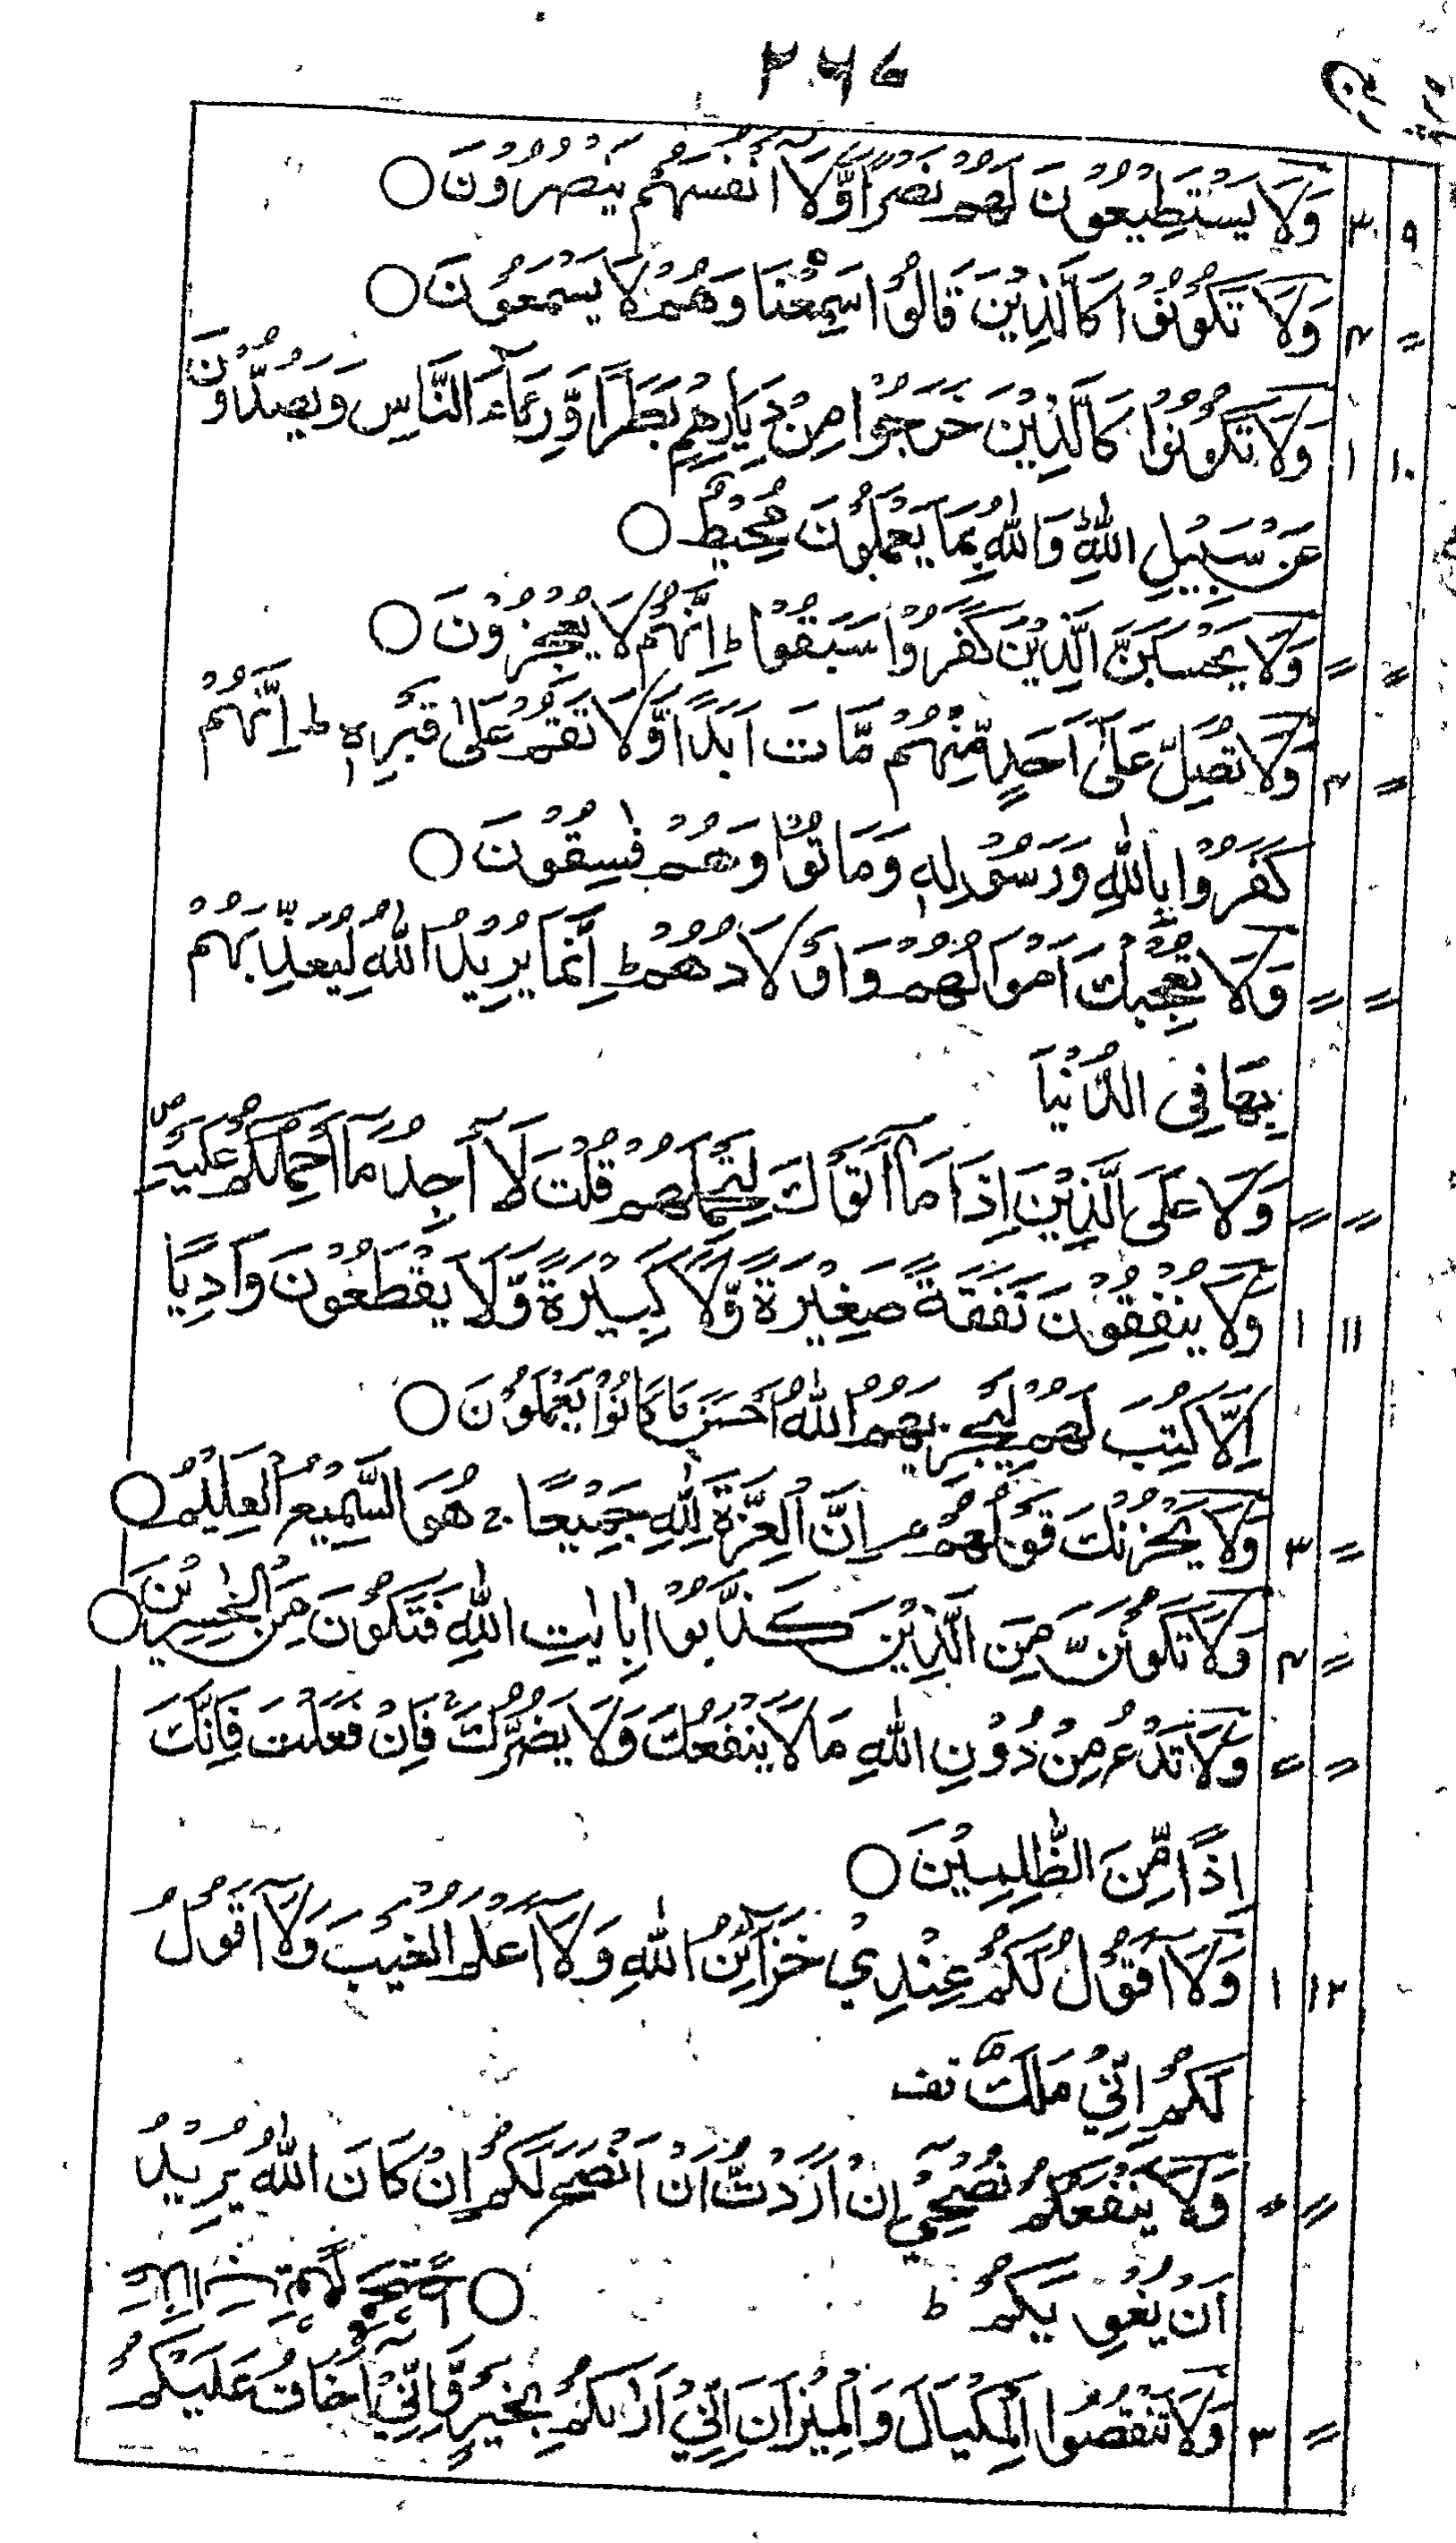 ۲۴۶
۹ ۳ وَلَا يَسْتَطِيْعُوْنَ لَهُمْ نَصْرًا وَّلَا اَنْفُسَهُمْ يَنْصُرُوْنَ ○
〃 ۴ وَلَا تَكُوْنُوْا كَالَّذِيْنَ قَالُوْا سَمِعْنَا وَهُمْ لَا يَسْمَعُوْنَ ○
۱۰ ۱ وَلَا تَكُوْنُوْا كَالَّذِيْنَ خَرَجُوْا مِنْ دِيَارِهِمْ بَطَرًا وَّرِئَآءَ النَّاسِ وَيَصُدُّوْنَ
عَنْ سَبِيْلِ اللّٰهِ ؕ وَاللّٰهُ بِمَا يَعْمَلُوْنَ مُحِيْطٌ ○
〃 〃 وَلَا يَحْسَبَنَّ الَّذِيْنَ كَفَرُوْا سَبَقُوْا ؕ اِنَّهُمْ لَا يُعْجِزُوْنَ ○
〃 ۴ وَلَا تُصَلِّ عَلٰٓى اَحَدٍ مِّنْهُمْ مَّاتَ اَبَدًا وَّلَا تَقُمْ عَلٰى قَبْرِهٖ ؕ اِنَّهُمْ
كَفَرُوْا بِاللّٰهِ وَرَسُوْلِهٖ وَمَاتُوْا وَهُمْ فٰسِقُوْنَ ○
〃 〃 وَلَا تُعْجِبْكَ اَمْوَالُهُمْ وَاَوْلَادُهُمْ ؕ اِنَّمَا يُرِيْدُ اللّٰهُ لِيُعَذِّبَهُمْ
بِهَا فِى الدُّنْيَا
〃 〃 وَلَا عَلَى الَّذِيْنَ اِذَا مَآ اَتَوْكَ لِتَحْمِلَهُمْ قُلْتَ لَآ اَجِدُ مَآ اَحْمِلُكُمْ عَلَيْهِ ۖ
۱۱ ۱ وَلَا يُنْفِقُوْنَ نَفَقَةً صَغِيْرَةً وَّلَا كَبِيْرَةً وَّلَا يَقْطَعُوْنَ وَادِيًا
اِلَّا كُتِبَ لَهُمْ لِيَجْزِيَهُمُ اللّٰهُ اَحْسَنَ مَا كَانُوْا يَعْمَلُوْنَ ○
〃 ۳ وَلَا يَحْزُنْكَ قَوْلُهُمْ ۘ اِنَّ الْعِزَّةَ لِلّٰهِ جَمِيْعًا ؕ هُوَ السَّمِيْعُ الْعَلِيْمُ ○
〃 ۴ وَلَا تَكُوْنَنَّ مِنَ الَّذِيْنَ كَذَّبُوْا بِاٰيٰتِ اللّٰهِ فَتَكُوْنَ مِنَ الْخٰسِرِيْنَ ○
〃 〃 وَلَا تَدْعُ مِنْ دُوْنِ اللّٰهِ مَا لَا يَنْفَعُكَ وَلَا يَضُرُّكَ ۚ فَاِنْ فَعَلْتَ فَاِنَّكَ
اِذًا مِّنَ الظّٰلِمِيْنَ ○
۱۲ ۱ وَلَآ اَقُوْلُ لَكُمْ عِنْدِيْ خَزَآئِنُ اللّٰهِ وَلَآ اَعْلَمُ الْغَيْبَ وَلَآ اَقُوْلُ
لَكُمْ اِنِّيْ مَلَكٌ تف
〃 〃 وَلَا يَنْفَعُكُمْ نُصْحِيْٓ اِنْ اَرَدْتُّ اَنْ اَنْصَحَ لَكُمْ اِنْ كَانَ اللّٰهُ يُرِيْدُ
اَنْ يُّغْوِيَكُمْ ؕ ○
〃 ۳ وَلَا تَنْقُصُوا الْمِكْيَالَ وَالْمِيْزَانَ اِنِّيْٓ اَرٰىكُمْ بِخَيْرٍ وَّاِنِّيْٓ اَخَافُ عَلَيْكُمْ